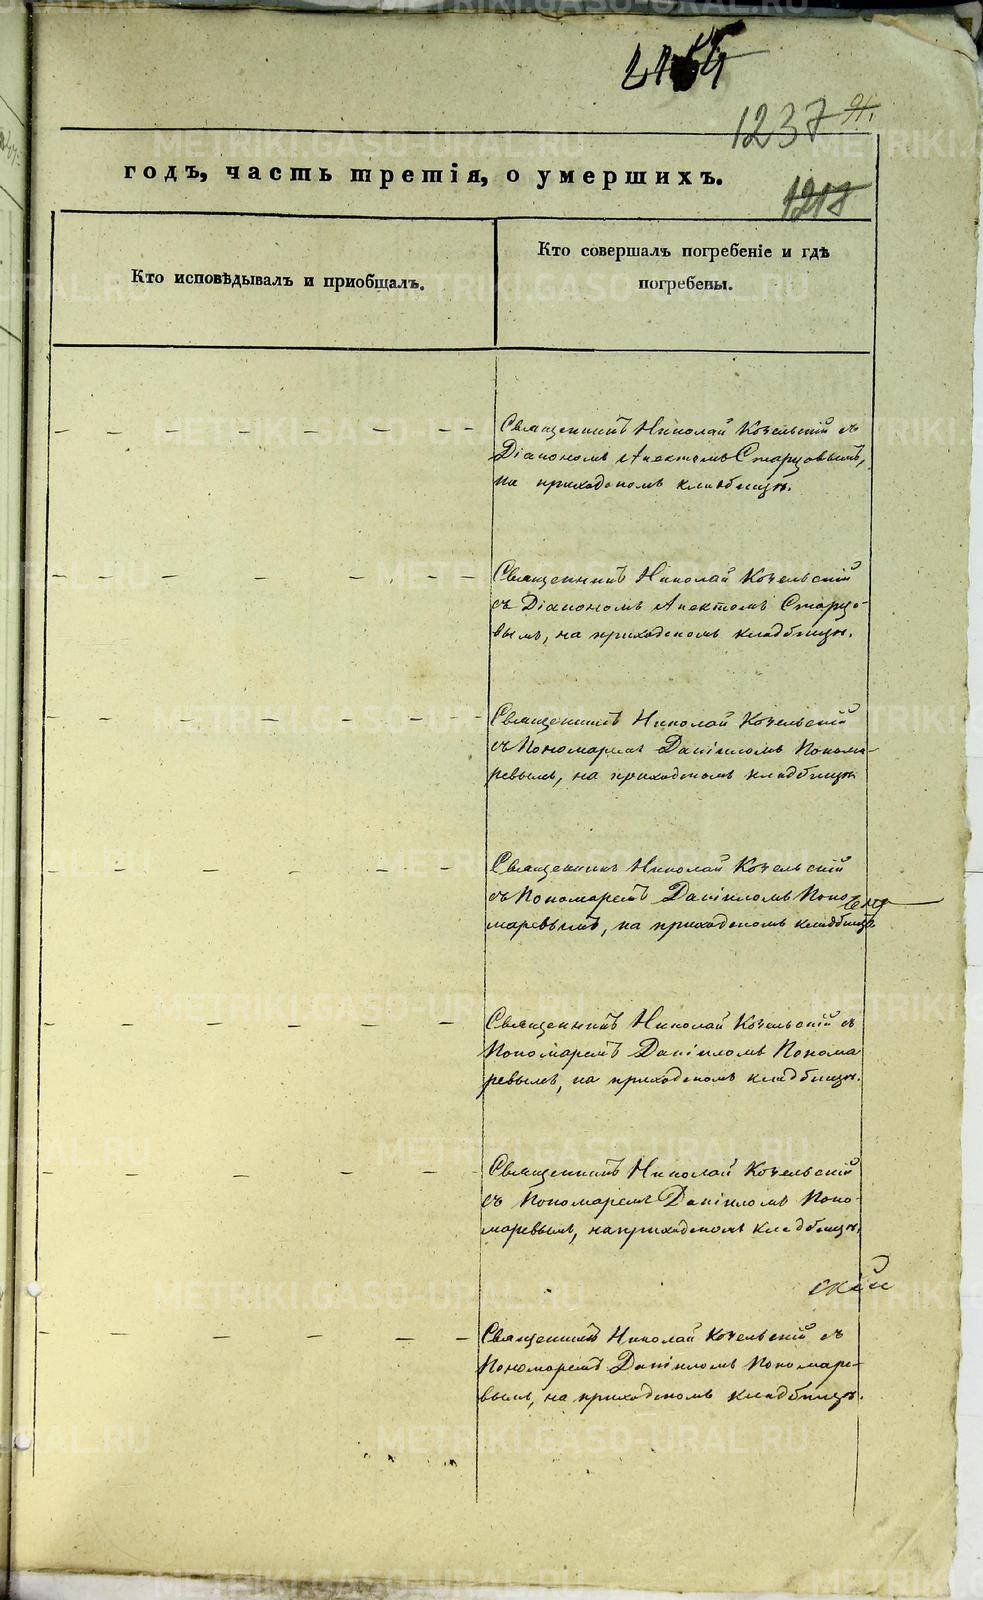 1237
1218
годъ, часть третія, о умершихъ.
Кто исповѣдывалъ и приобщалъ.
Кто совершалъ погребеніе и гдѣ
погребены.
Священникъ Николай Кочельскій съ
Діакономъ Анектомъ Старцовымъ,
на приходскомъ кладбищѣ.
Священникъ Николай Кочельскій
съ Діакономъ Анектомъ Старцо-
вымъ, на приходскомъ кладбищѣ.
Священникъ Николай Кочельскій
съ Пономаремъ Даніиломъ Понома-
ревымъ, на приходскомъ кладбищѣ
Священникъ Николай Кочельскій
съ Пономаремъ Даніиломъ Поно
маревымъ, на приходскомъ кладбищѣ
Священникъ Николай Кочельскій съ
Пономаремъ Даніиломъ Понома
ревымъ, на приходскомъ кладбищѣ.
Священникъ Николай Кочельскій
съ Пономаремъ Даніиломъ Поно-
маревымъ, на приходскомъ кладбищѣ.
скій
Священникъ Николай Кочельскій съ
Пономаремъ Даніиломъ Пономаре-
вымъ, на приходскомъ кладбищѣ.
METRIKI.GASO-URAL.RU